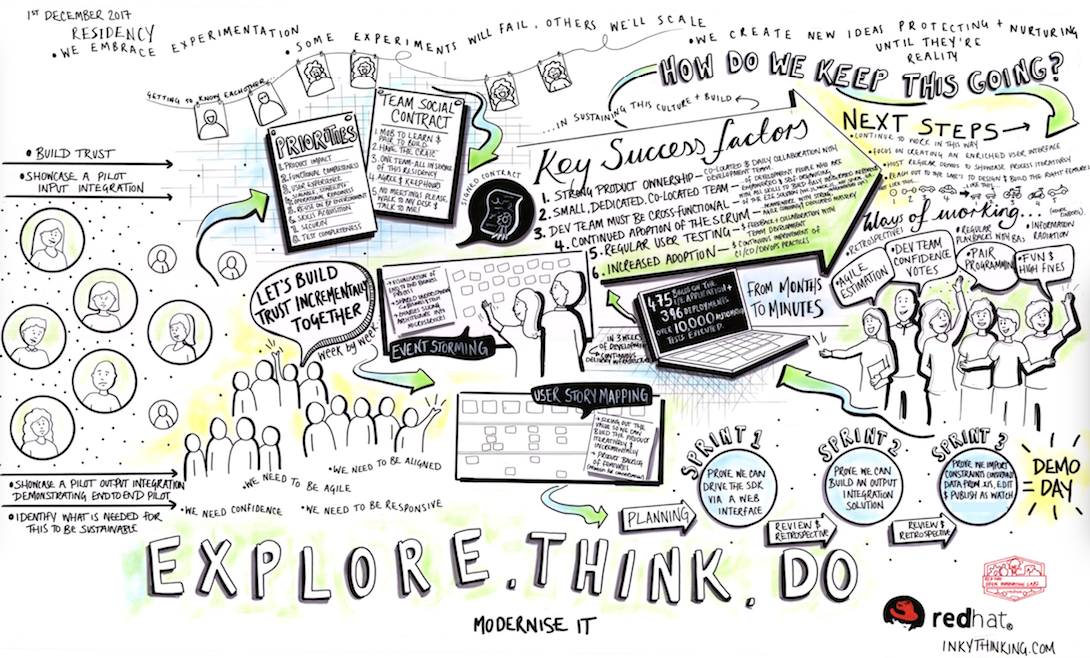 1ST DECEMBER 2017
RESIDENCY
• WE EMBRACE EXPERIMENTATION
• SOME EXPERIMENTS WILL FAIL, OTHERS WE'LL SCALE
• WE CREATE NEW IDEAS PROTECTING + NURTURING
UNTIL THEY'RE
REALITY
HOW DO WE KEEP THIS GOING?
GETTING TO KNOW EACHOTHER...
...IN SUSTAINING THIS CULTURE + BUILD
PRIORITIES
1. PRODUCT IMPACT
2. FUNCTIONAL COMPLETENESS
3. USER EXPERIENCE
8. SKILLS ACQUISITION
9. SECURITY
10. TEST COMPLETENESS
TEAM SOCIAL
CONTRACT
1. MOB TO LEARN &
PAIR TO BUILD
2. HAVE THE CRAIC
3. ONE TEAM - ALL IN SCOPE
OF THIS RESIDENCY
4. AGREE & KEEP HOURS
5. NO MEETINGS PLEASE,
WALK TO MY DESK &
TALK TO ME!
SIGNED CONTRACT
Key Success factors
1. STRONG PRODUCT OWNERSHIP — CO-LOCATED & DAILY COLLABORATION WITH
DEVELOPMENT TEAM
2. SMALL, DEDICATED, CO-LOCATED TEAM — OF DEVELOPMENT PEOPLE WHO ARE
EMPOWERED & SELF ORGANISING
3. DEV TEAM MUST BE CROSS-FUNCTIONAL
4. CONTINUED ADOPTION OF THE SCRUM
5. REGULAR USER TESTING — & FEEDBACK + COLLABORATION WITH
TEAM DEVELOPMENT
6. INCREASED ADOPTION — & CONTINUOUS IMPROVEMENT OF
CI/CD/DEVOPS PRACTICES
NEXT STEPS →
• CONTINUE TO WORK IN THIS WAY
• FOCUS ON CREATING AN ENRICHED USER INTERFACE
• HOST REGULAR DEMOS TO SHOWCASE PROCESS ITERATIVELY
• REACH OUT TO THE SME'S TO DESIGN & BUILD THE RIGHT FEATURES
LIKE THIS...
Ways of working...
• RETROSPECTIVES
• AGILE
ESTIMATION
• DEV TEAM
CONFIDENCE
VOTES
• REGULAR
PLAYBACKS WITH BAs
• PAIR
PROGRAMMING
• INFORMATION
RADIATION
• FUN &
HIGH FIVES
• BUILD TRUST
• SHOWCASE A PILOT
INPUT INTEGRATION
LET'S BUILD
TRUST INCREMENTALLY
TOGETHER
WEEK BY WEEK
• VISUALISATION OF
END TO END BUSINESS
PROCESS
• SHARED UNDERSTANDING
EVENT STORMING
475 BUILDS ON THE
APPLICATION +
396 DEPLOYMENTS
OVER 10000 AUTOMATED
TESTS EXECUTED.
IN 3 WEEKS
OF DEVELOPMENT
+ CONTINUOUS
DELIVERY INFRASTRUCTURE
FROM MONTHS
TO MINUTES
USER STORY MAPPING
VALUE SO WE CAN
BUILD THE PRODUCT
ITERATIVELY &
INCREMENTALLY
• PRODUCT BACKLOG
OF FEATURES
• SHOWCASE A PILOT OUTPUT INTEGRATION
DEMONSTRATING END TO END PILOT
• IDENTIFY WHAT IS NEEDED FOR
THIS TO BE SUSTAINABLE
• WE NEED TO BE ALIGNED
• WE NEED TO BE AGILE
• WE NEED CONFIDENCE
• WE NEED TO BE RESPONSIVE
PLANNING
SPRINT 1
PROVE WE CAN
DRIVE THE SDK
VIA A WEB
INTERFACE
REVIEW &
RETROSPECTIVE
SPRINT 2
PROVE WE CAN
BUILD AN OUTPUT
INTEGRATION
SOLUTION
REVIEW &
RETROSPECTIVE
SPRINT 3
PROVE WE IMPORT
CONSTRAINTS
DATA FROM .XLS, EDIT
& PUBLISH AS WATCH
= DEMO
DAY
EXPLORE. THINK. DO
MODERNISE IT
RED HAT
OPEN INNOVATION LABS
redhat®
INKYTHINKING.COM